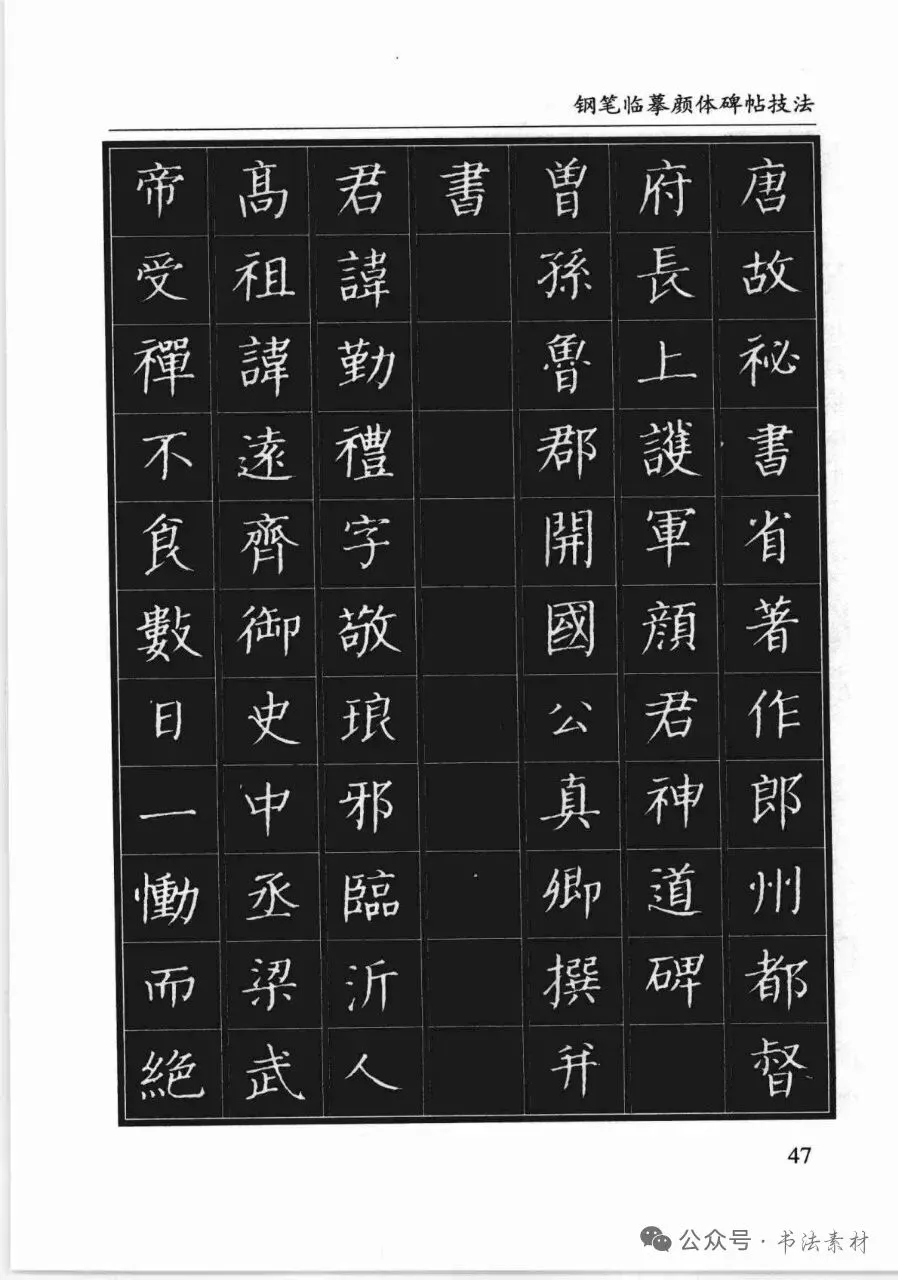 钢笔临摹颜体碑帖技法
唐故祕書省著作郎州都督
府長上護軍顔君神道碑
曾孫魯郡開國公真卿撰并
書
君諱勤禮字敬琅邪臨沂人
髙祖諱遠齊御史中丞梁武
帝受禪不食數日一慟而絶
47
公众号·书法素材